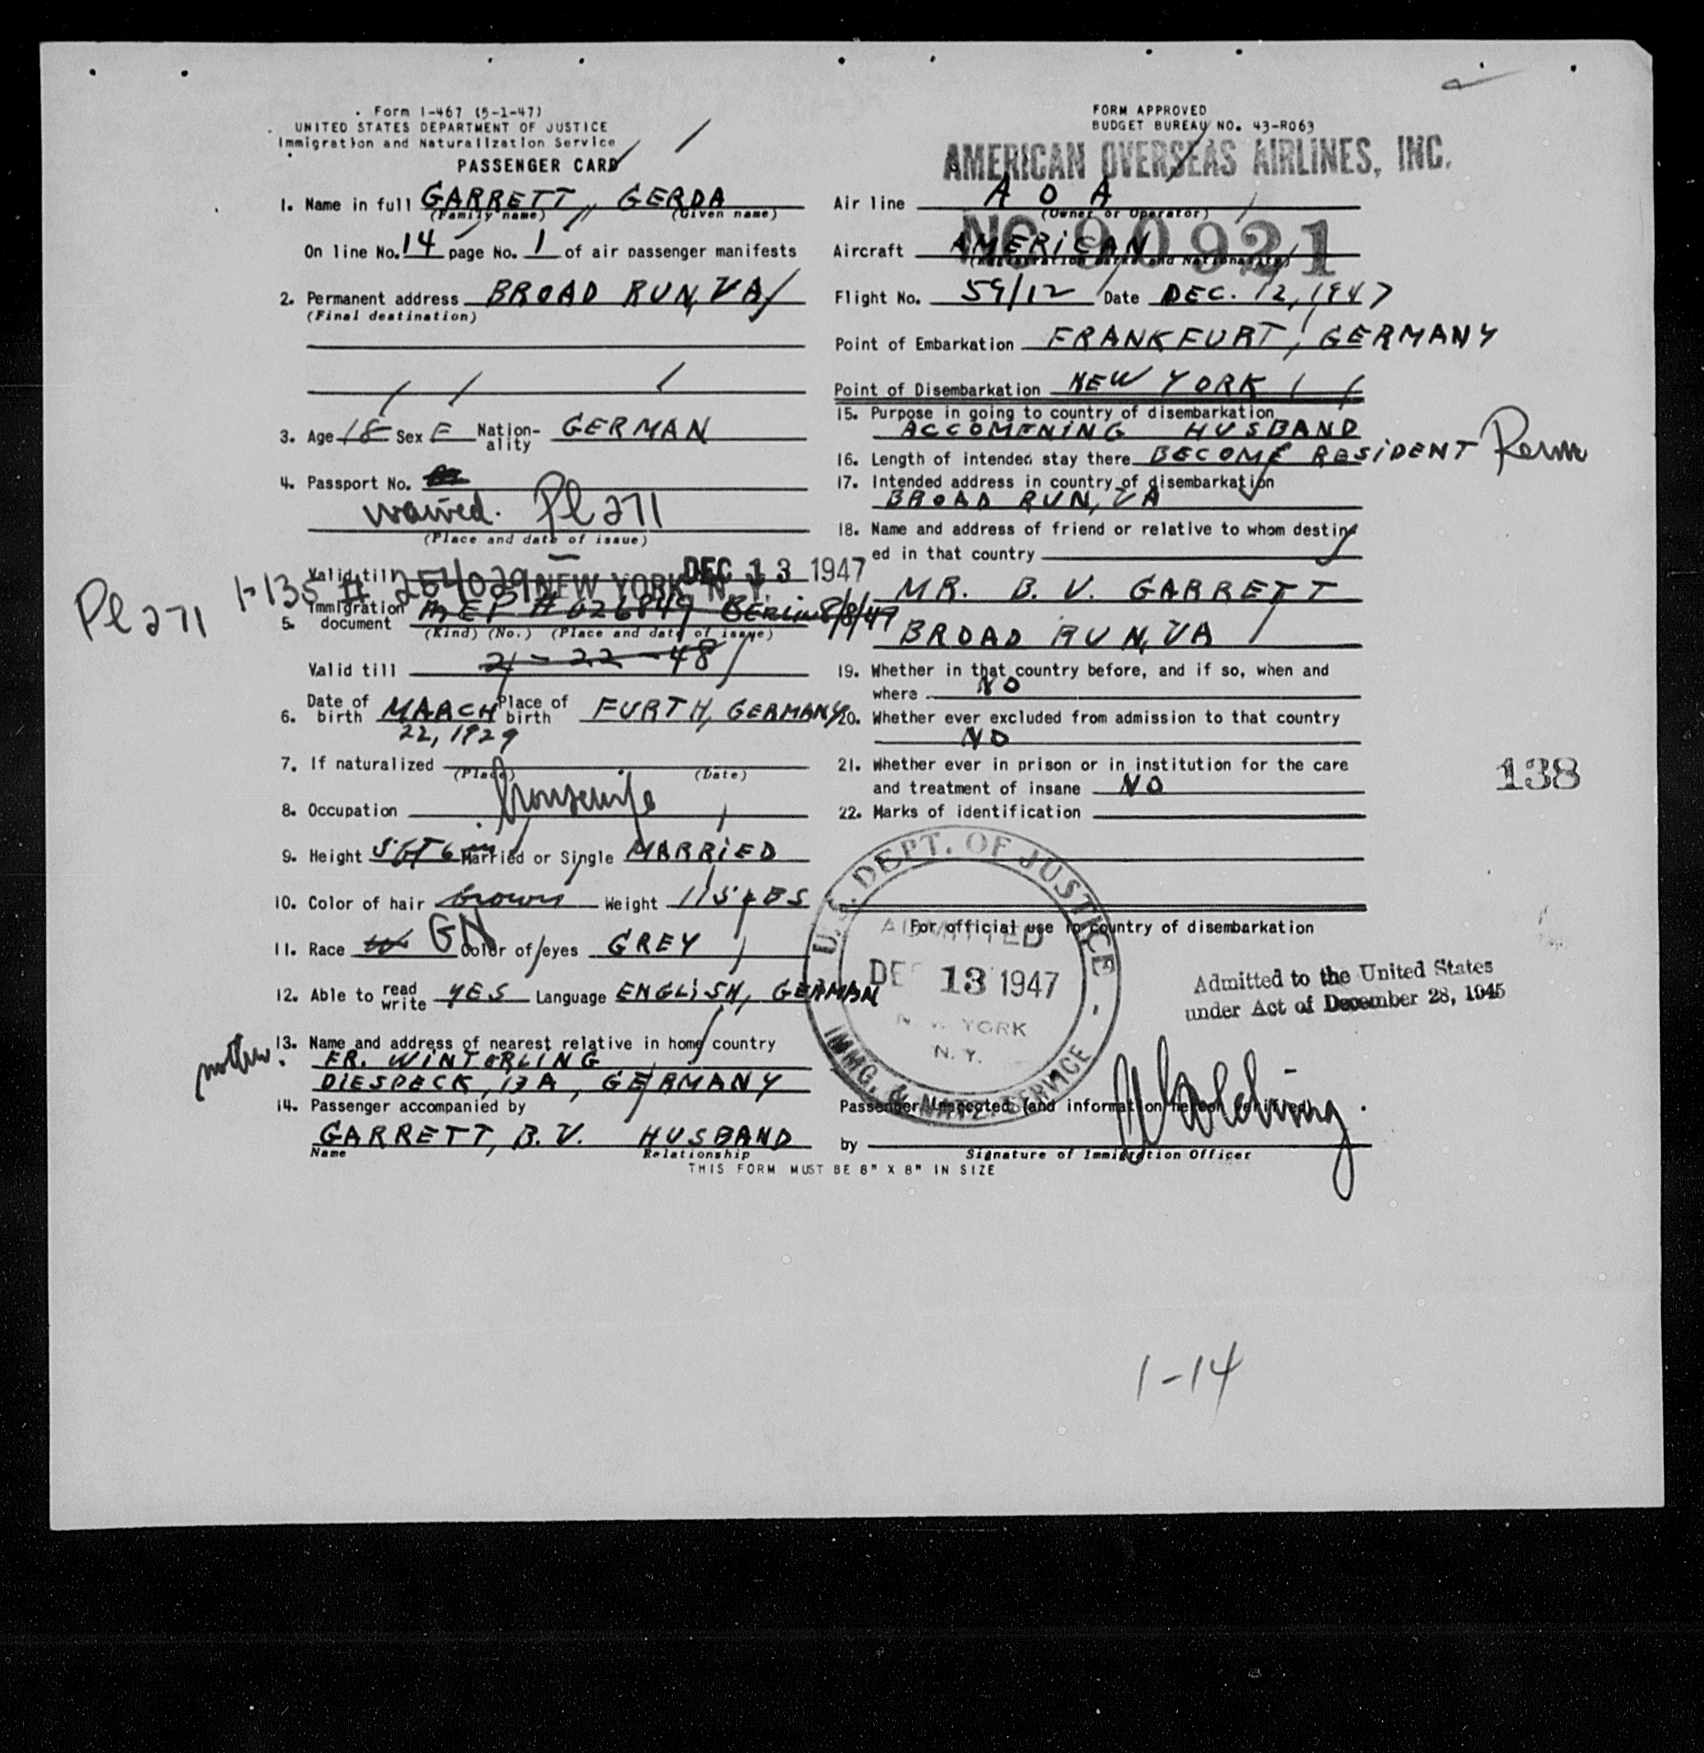 Form I-467 (5-1-47)
UNITED STATES DEPARTMENT OF JUSTICE
Immigration and Naturalization Service
PASSENGER CARD
1. Name in full GARRETT, GERDA
(Family name) (Given name)
On line No. 14 page No. 1 of air passenger manifests
2. Permanent address BROAD RUN, VA
(Final destination)
3. Age 18 Sex F Nation-ality GERMAN
4. Passport No.
waived. Pl 271
(Place and date of issue)
Valid till
DEC 13 1947
NEW YORK, N.Y.
Pl 271 I-135 # 254029
5. Immigration document MEP # 026849 BERLIN 8/8/47
(Kind) (No.) (Place and date of issue)
Valid till 2-22-48
6. Date of birth MARCH 22, 1929 Place of birth FURTH, GERMANY
7. If naturalized
(Place) (Date)
8. Occupation housewife
9. Height 5 FT 6 in Married or Single MARRIED
10. Color of hair brown Weight 115 LBS
11. Race GN Color of eyes GREY
12. Able to read write YES Language ENGLISH, GERMAN
13. Name and address of nearest relative in home country
mother. FR. WINTERLING
DIESPECK, 13A, GERMANY
14. Passenger accompanied by
GARRETT, B.V. HUSBAND
Name Relationship
THIS FORM MUST BE 8" X 8" IN SIZE
FORM APPROVED
BUDGET BUREAU NO. 43-R063
AMERICAN OVERSEAS AIRLINES, INC.
Air line A O A
(Owner or Operator)
NC 90921
Aircraft AMERICAN
(Registration Marks and Nationality)
Flight No. 59/12 Date DEC. 12, 1947
Point of Embarkation FRANKFURT, GERMANY
Point of Disembarkation NEW YORK
15. Purpose in going to country of disembarkation
ACCOMPNING HUSBAND
16. Length of intended stay there BECOME RESIDENT Perm
17. Intended address in country of disembarkation
BROAD RUN, VA
18. Name and address of friend or relative to whom destin-
ed in that country
MR. B. V. GARRETT
BROAD RUN, VA
19. Whether in that country before, and if so, when and
where NO
20. Whether ever excluded from admission to that country
NO
21. Whether ever in prison or in institution for the care
and treatment of insane NO
138
22. Marks of identification
For official use in country of disembarkation
U. S. DEPT. OF JUSTICE
ADMITTED
DEC 13 1947
NEW YORK
N. Y.
IMMG. & NATZ. SERVICE
Admitted to the United States
under Act of December 28, 1945
Passenger Inspected (and information hereon verified)
by
Signature of Immigration Officer
1-14